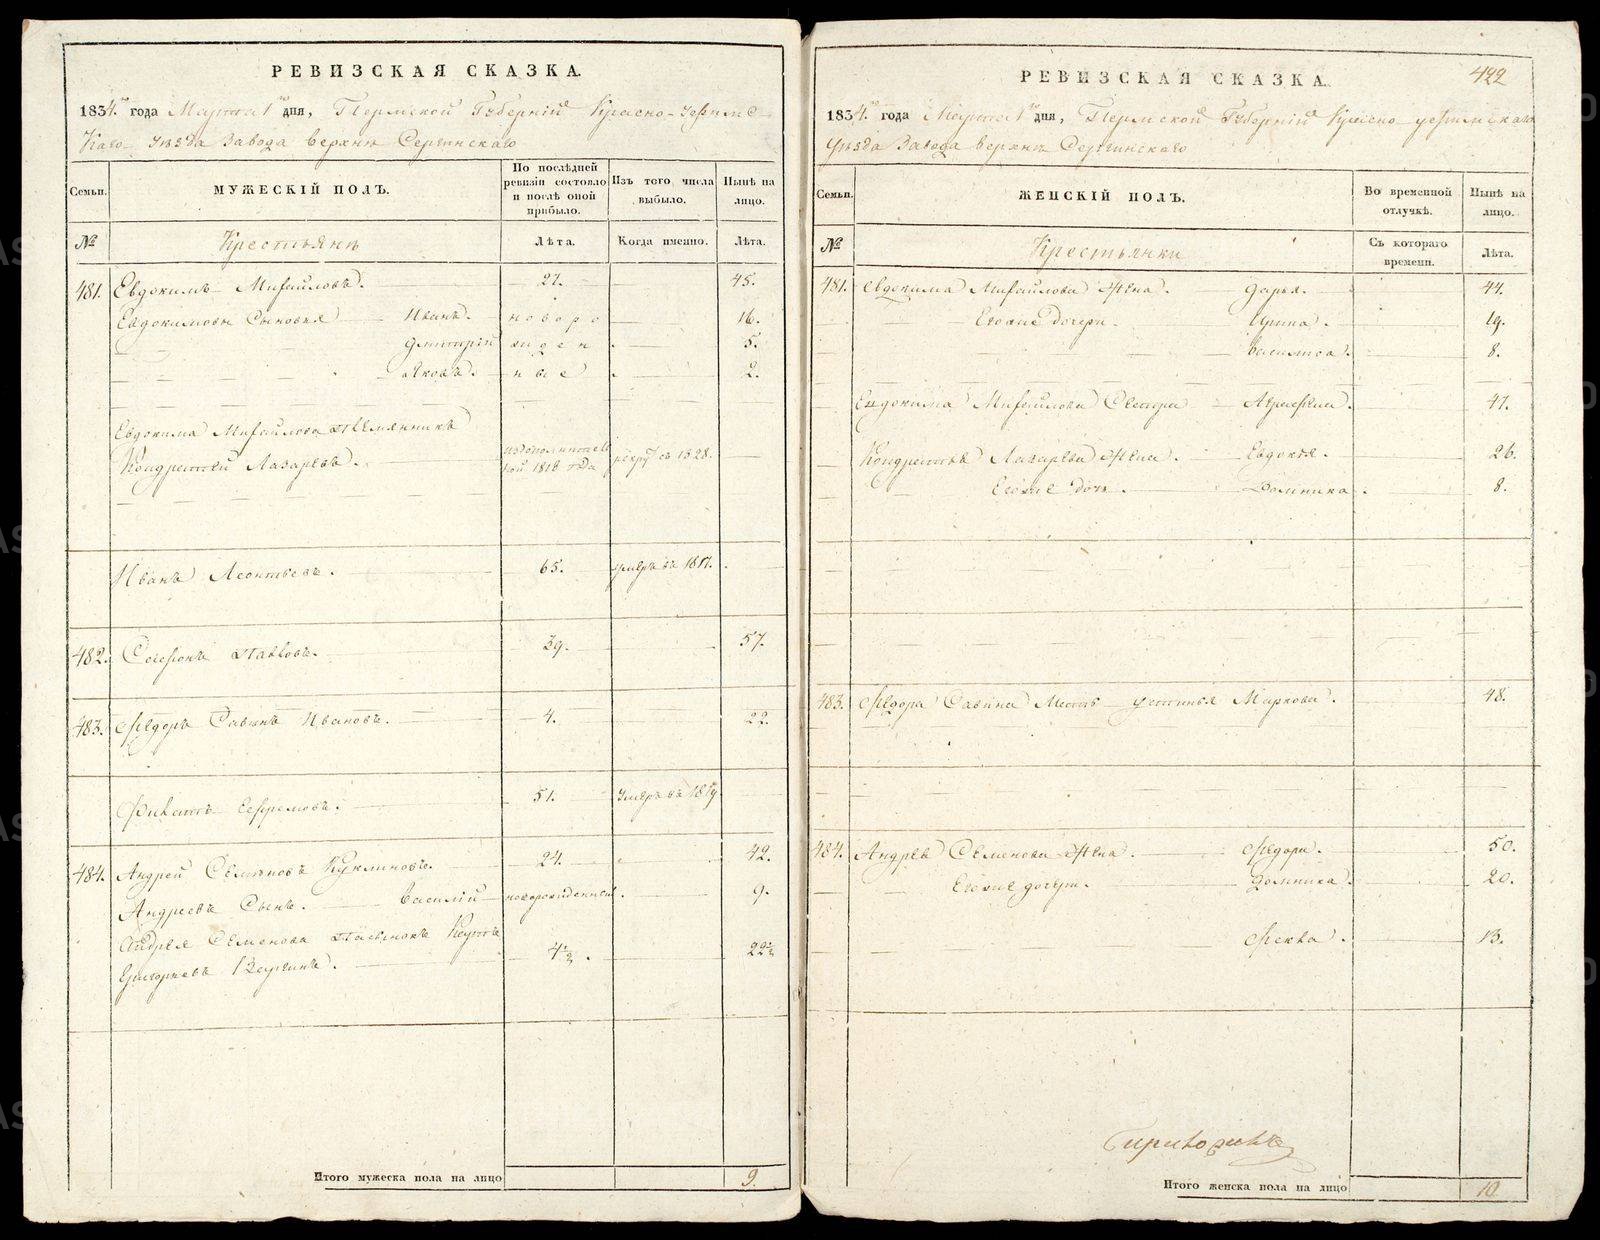 РЕВИЗСКАЯ СКАЗКА.
1834го года Марта 1го дня, Пермской Губернiи Красно-Уфимс-
каго Уѣзда Завода верхне Сергинскаго
Семьи.
МУЖЕСКІЙ ПОЛЪ.
По послѣдней ревизіи состояло и послѣ оной прибыло.
Изъ того числа выбыло.
Нынѣ на лицо.
№
Крестьяне
Лѣта.
Когда именно.
Лѣта.
481. Евдокимъ Михайловъ. 27. 45.
Евдокимовы Сыновья Иванъ. новоро 16.
Дмитрий жден 5.
Яковъ. ные 2.
Евдокима Михайлова племянникъ
Кондратей Лазаревъ. 1816 года рекрут съ 1828.
Иванъ Леонтьевъ. 65. умеръ въ 1817.
482. Софронъ Павловъ. 39. 57.
483. Федоръ Савинъ Ивановъ. 4. 22.
Ефремовъ. 51. умеръ въ 1819.
484. Андрей Семеновъ Куклиновъ. 24. 42.
Андреевъ Сынъ. Василий новорожденный. 9.
Андрея Семенова пасынокъ
Григорьевъ 4½. 22½
Итого мужеска пола на лицо 9.
РЕВИЗСКАЯ СКАЗКА.
422
1834го года Марта 1го дня, Пермской Губернiи Красно уфимскаго
Уѣзда Завода верхне Сергинскаго
Семьи.
ЖЕНСКІЙ ПОЛЪ.
Во временной отлучкѣ.
Нынѣ на лицо.
№
Крестьянки
Съ котораго времени.
Лѣта.
481. Евдокима Михайлова Жена. Дарья. 44.
Егоже дочери. Ирина. 19.
Василиса. 8.
Евдокима Михайлова Сестра 47.
Кондратья Лазарева Жена. Евдокея. 26.
Егоже дочь. Домника. 8.
483. Федора Савина Мать Устинья Маркова. 48.
484. Андрея Семенова Жена. Федора. 50.
Егоже дочери. Домника. 20.
Фекла. 13.
Итого женска пола на лицо 10